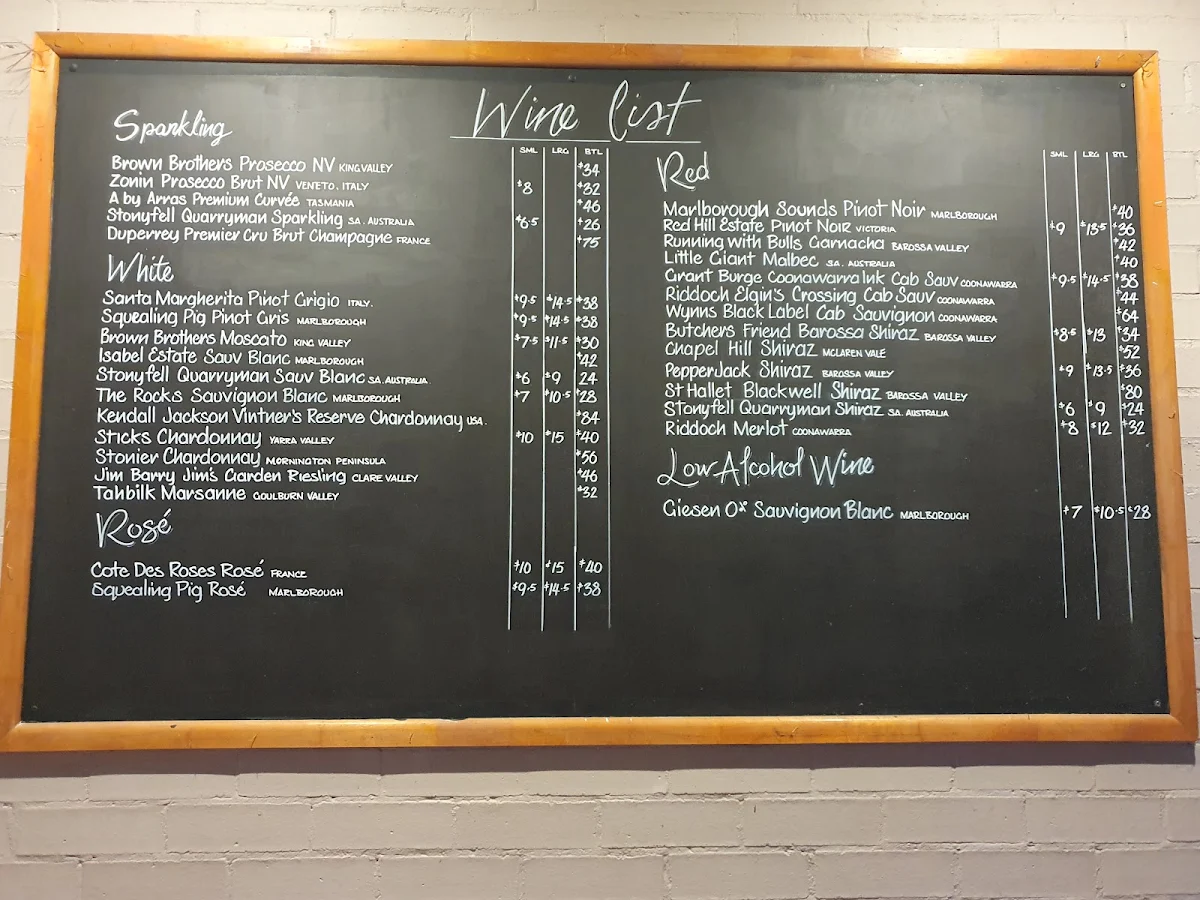 Wine List
Sparkling
SML LRG BTL
Brown Brothers Prosecco NV KING VALLEY $34
Zonin Prosecco Brut NV VENETO. ITALY $8 $32
A by Arras Premium Curvée TASMANIA $46
Stonyfell Quarryman Sparkling S.A. AUSTRALIA $6.5 $26
Duperrey Premier Cru Brut Champagne FRANCE $75
White
Santa Margherita Pinot Grigio ITALY. $9.5 $14.5 $38
Squealing Pig Pinot Gris MARLBOROUGH $9.5 $14.5 $38
Brown Brothers Moscato KING VALLEY $7.5 $11.5 $30
Isabel Estate Sauv Blanc MARLBOROUGH $42
Stonyfell Quarryman Sauv Blanc S.A. AUSTRALIA $6 $9 24
The Rocks Sauvignon Blanc MARLBOROUGH $7 $10.5 $28
Kendall Jackson Vintner's Reserve Chardonnay USA. $84
Sticks Chardonnay YARRA VALLEY $10 $15 $40
Stonier Chardonnay MORNINGTON PENINSULA $56
Jim Barry Jim's Garden Riesling CLARE VALLEY $46
Tahbilk Marsanne GOULBURN VALLEY $32
Rosé
Cote Des Roses Rosé FRANCE $10 $15 $40
Squealing Pig Rosé MARLBOROUGH $9.5 $14.5 $38
Red
SML LRG BTL
Marlborough Sounds Pinot Noir MARLBOROUGH $40
Red Hill Estate Pinot Noir VICTORIA $9 $13.5 $36
Running with Bulls Garnacha BAROSSA VALLEY $42
Little Giant Malbec S.A. AUSTRALIA $40
Grant Burge Coonawarra Ink Cab Sauv COONAWARRA $9.5 $14.5 $38
Riddoch Elgin's Crossing Cab Sauv COONAWARRA $44
Wynns Black Label Cab Sauvignon COONAWARRA $64
Butchers Friend Barossa Shiraz BAROSSA VALLEY $8.5 $13 $34
Chapel Hill Shiraz MCLAREN VALE $52
PepperJack Shiraz BAROSSA VALLEY $9 $13.5 $36
St Hallet Blackwell Shiraz BAROSSA VALLEY $80
Stonyfell Quarryman Shiraz S.A. AUSTRALIA $6 $9 $24
Riddoch Merlot COONAWARRA $8 $12 $32
Low Alcohol Wine
Giesen 0% Sauvignon Blanc MARLBOROUGH $7 $10.5 $28